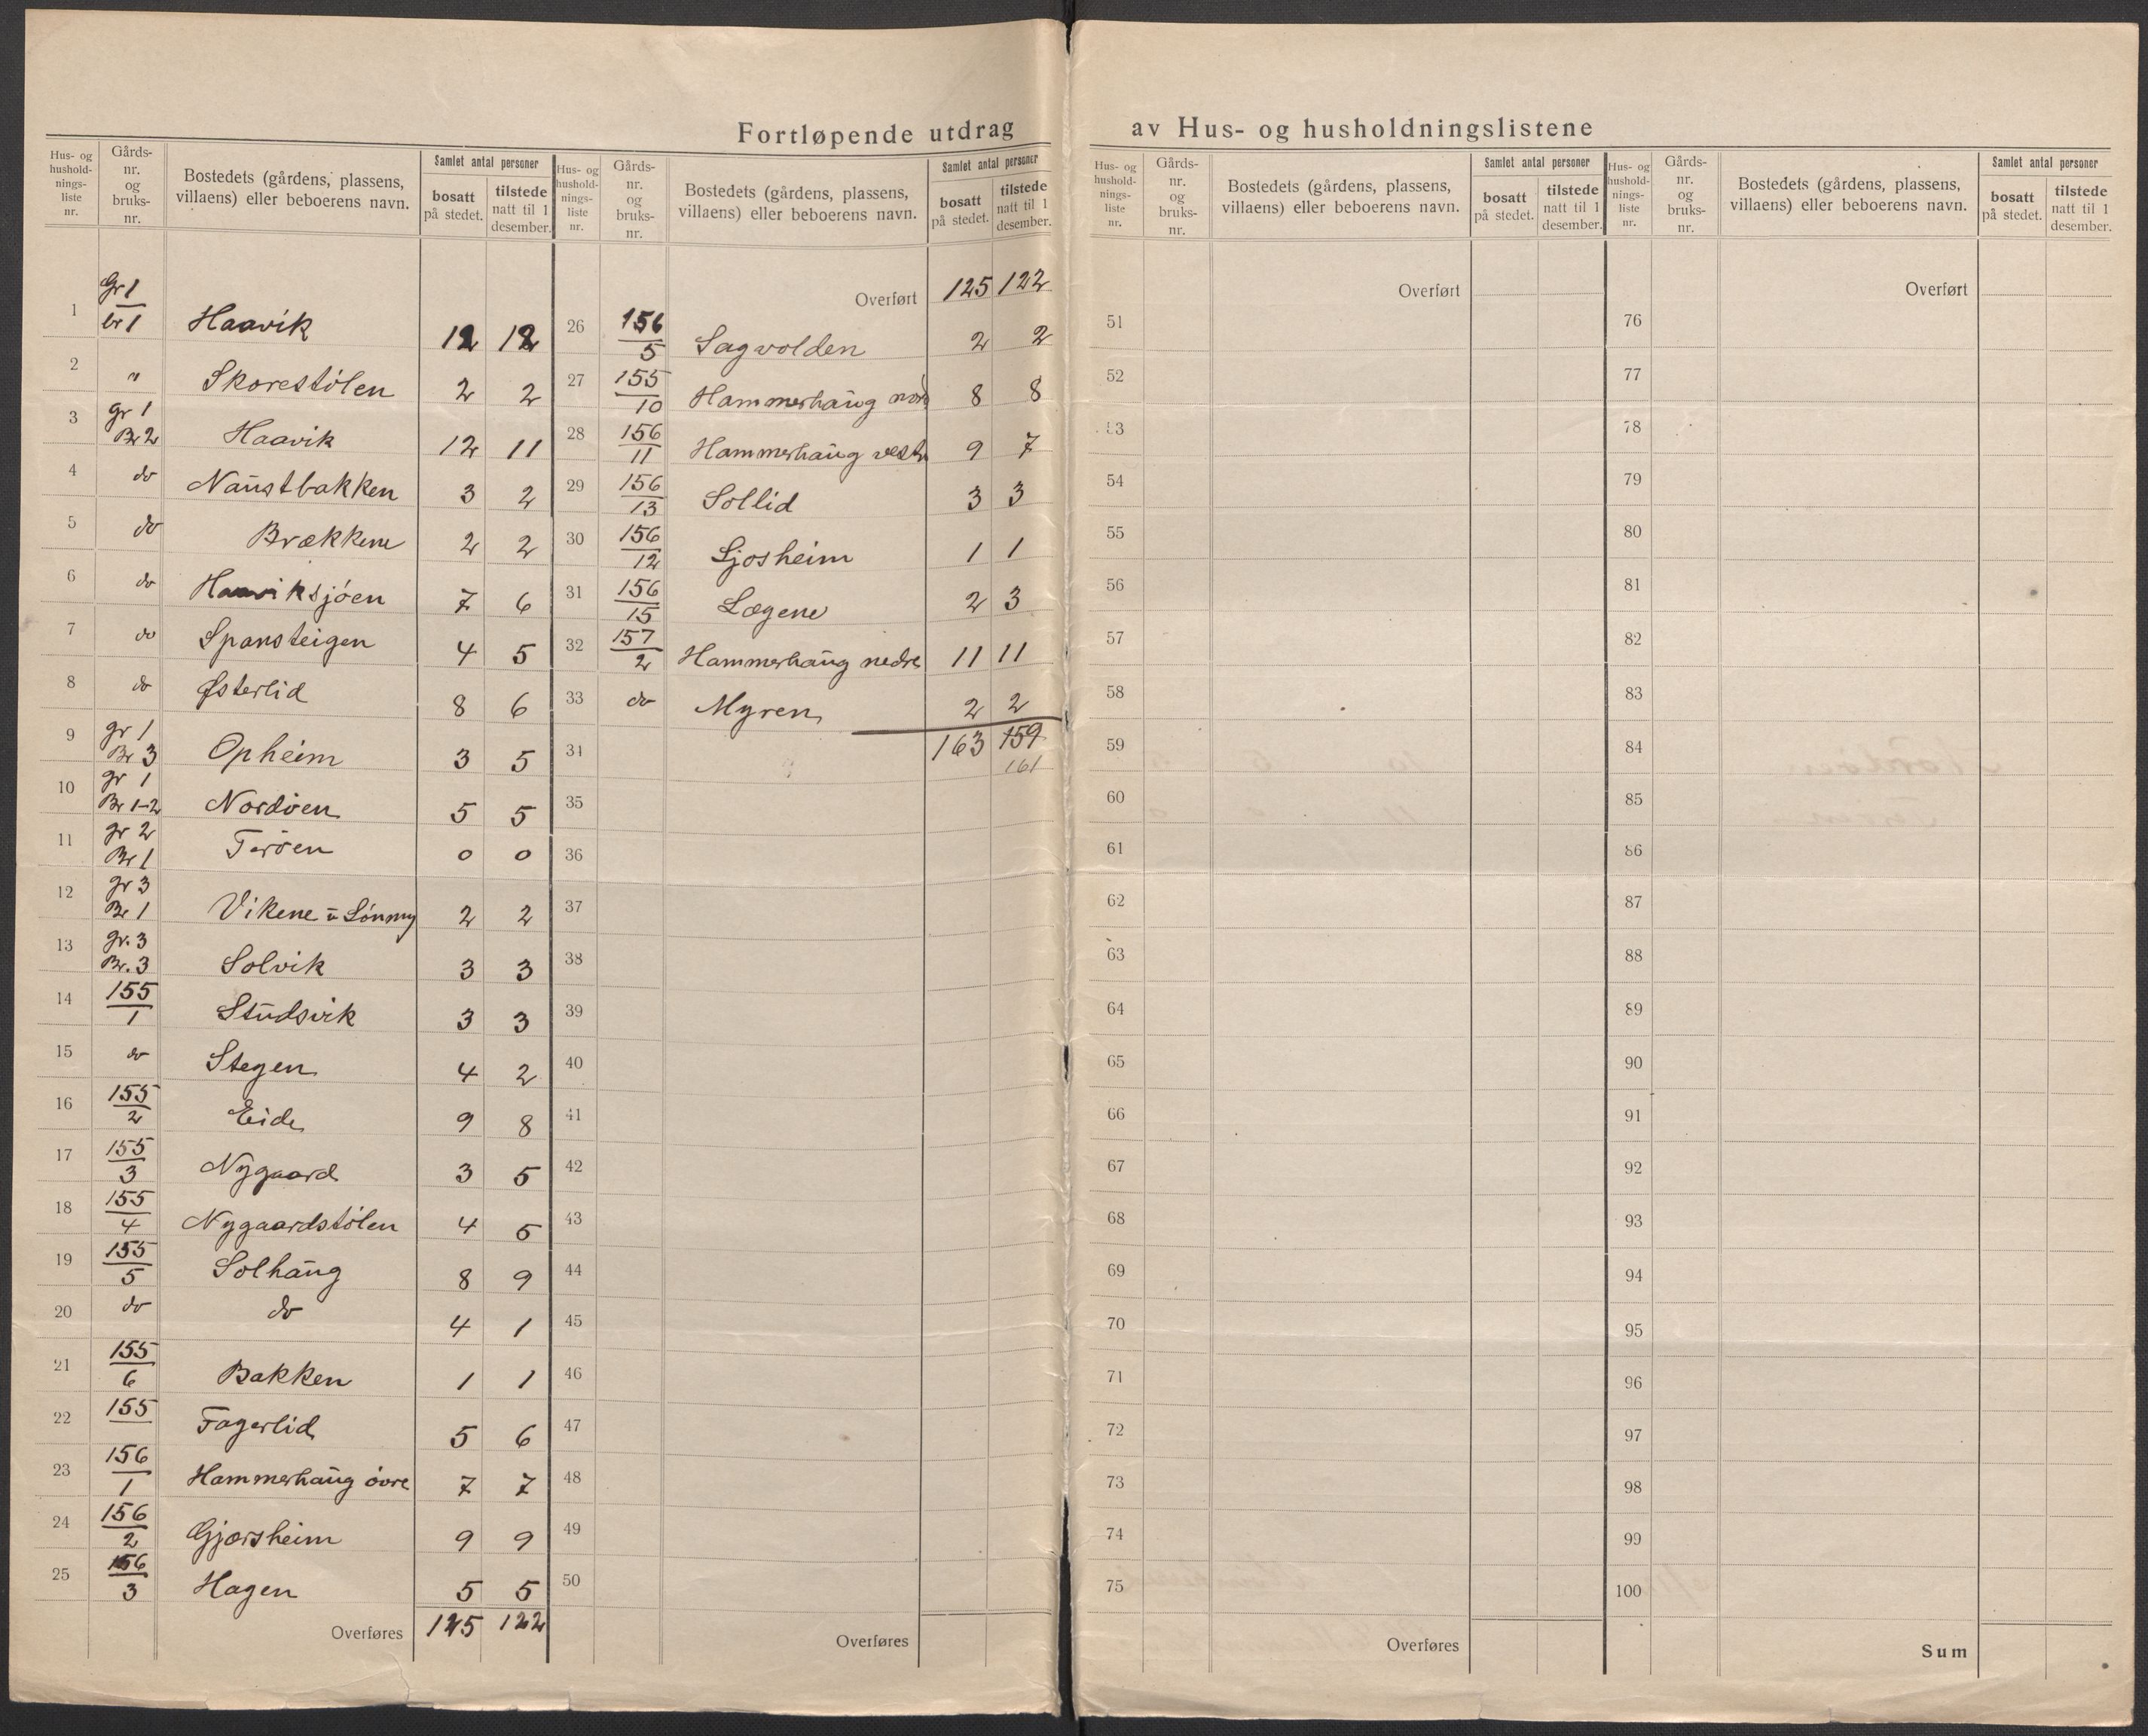 Fortløpende utdrag av Hus- og husholdningslistene
Hus- og hushold-nings-liste nr. Gårds-nr. og bruks-nr. Bostedets (gårdens, plassens, villaens) eller beboerens navn. Samlet antal personer bosatt på stedet. tilstede natt til 1 desember.
1 Gr 1 br 1 Haavik 12 12
2 " Skorestølen 2 2
3 gr 1 Br 2 Haavik 12 11
4 do Naustbakken 3 2
5 do Brækkene 2 2
6 do Haaviksjøen 7 6
7 do Spansteigen 4 5
8 do Østerlid 8 6
9 gr 1 Br 3 Opheim 3 5
10 gr 1 Br 1-2 Nordøen 5 5
11 gr 2 Br 1 Terøen 0 0
12 gr 3 Br 1 Vikene 2 2
13 gr. 3 Br. 3 Solvik 3 3
14 155/1 Studsvik 3 3
15 do Stegen 4 2
16 155/2 Eide 9 8
17 155/3 Nygaard 3 5
18 155/4 Nygaardstølen 4 5
19 155/5 Solhaug 8 9
20 do do 4 1
21 155/6 Bakken 1 1
22 155 Fagerlid 5 6
23 156/1 Hammerhaug övre 7 7
24 156/2 Gjærsheim 9 9
25 156/3 Hagen 5 5
Overføres 125 122
Hus- og hushold-nings-liste nr. Gårds-nr. og bruks-nr. Bostedets (gårdens, plassens, villaens) eller beboerens navn. Samlet antal personer bosatt på stedet. tilstede natt til 1 desember.
Overført 125 122
26 156/5 Sagvolden 2 2
27 155/10 Hammerhaug nord 8 8
28 156/11 Hammerhaug vestr 9 7
29 156/13 Sollid 3 3
30 156/12 Ljosheim 1 1
31 156/15 Lægene 2 3
32 157/2 Hammerhaug nedre 11 11
33 do Myren 2 2
34 163 159
161
35
36
37
38
39
40
41
42
43
44
45
46
47
48
49
50
Overføres
Hus- og hushold-nings-liste nr. Gårds-nr. og bruks-nr. Bostedets (gårdens, plassens, villaens) eller beboerens navn. Samlet antal personer bosatt på stedet. tilstede natt til 1 desember.
Overført
51
52
53
54
55
56
57
58
59
60
61
62
63
64
65
66
67
68
69
70
71
72
73
74
75
Overføres
Hus- og hushold-nings-liste nr. Gårds-nr. og bruks-nr. Bostedets (gårdens, plassens, villaens) eller beboerens navn. Samlet antal personer bosatt på stedet. tilstede natt til 1 desember.
Overført
76
77
78
79
80
81
82
83
84
85
86
87
88
89
90
91
92
93
94
95
96
97
98
99
100
Sum